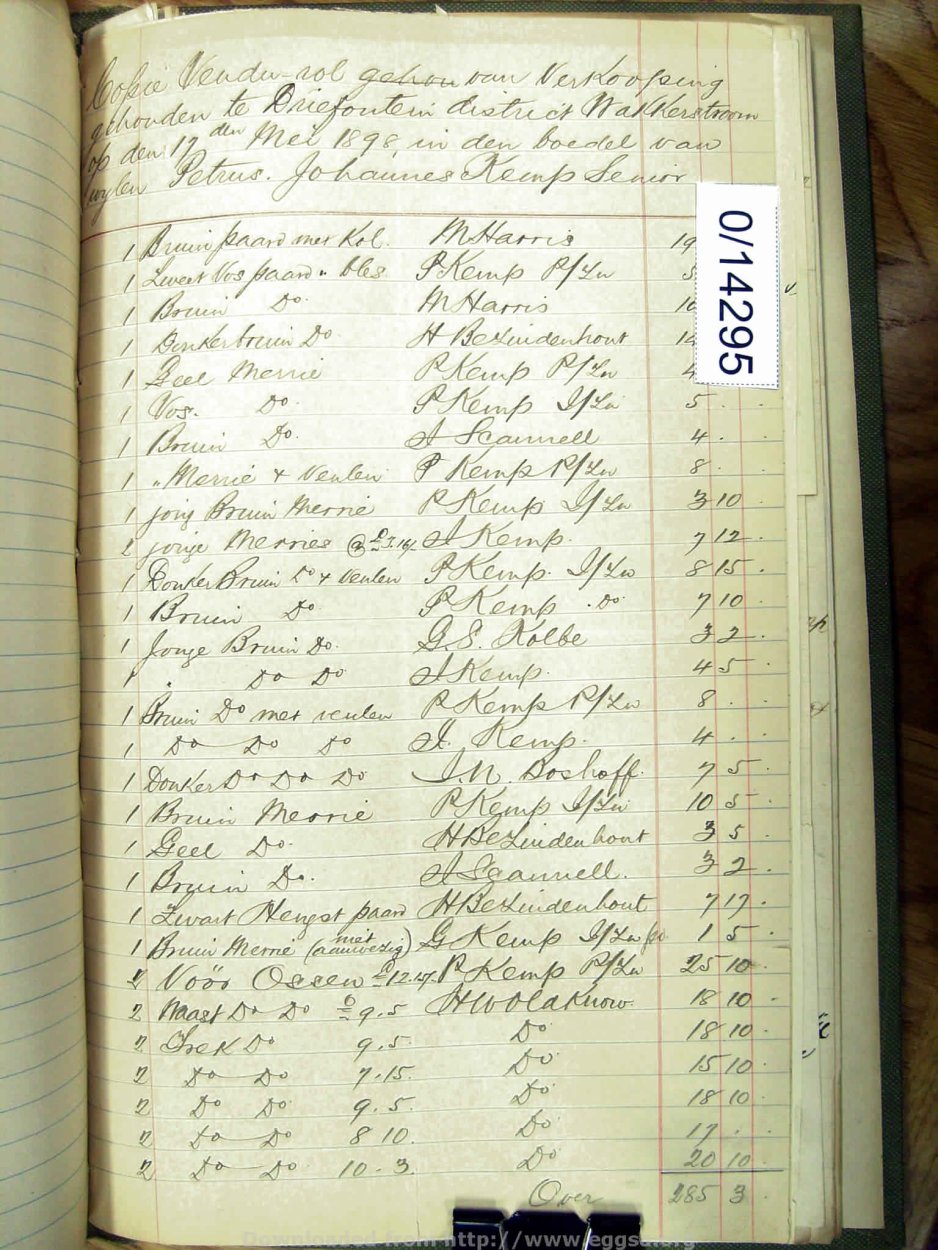 Copie Vendu-rol gehou van Verkoofsing
gehouden te Driefontein district Wakkerstroom
op den 17 den Mei 1898, in den boedel van
wylen Petrus. Johannes Kemp Senior
0/14295
1 Bruin paard met Kol. M Harris 19
1 Zweet Vos paard " bles P Kemp P/Zn 5
1 Bruin Do. M Harris 16
1 Donkerbruin Do H Bezuidenhout 14
1 Geel Merrie P Kemp P/Zn 4
1 Vos. Do. P Kemp I/Zn 5 . .
1 Bruin Do. A Scannell 4 . .
1 " Merrie + Veulen P Kemp P/Zn 8 . .
1 jong Bruin Merrie P Kemp I/Zn 3 10 .
2 jonge Merries @ £3.16/. A Kemp. 7 12 .
1 Donker Bruin Do + Veulen P Kemp. I/Zn 8 15 .
1 Bruin Do P Kemp . Do 7 10 .
1 Jonge Bruin Do. G.S. Kolbe 3 2 .
1 " Do Do A Kemp. 4 5 .
1 Bruin Do met veulen P Kemp P/Zn 8 . .
1 Do Do Do A. Kemp. 4 . .
1 Donker Do Do Do J.N. Boshoff. 7 5 .
1 Bruin Merrie P Kemp I/Zn 10 5 .
1 Geel Do. H Bezuidenhout 3 5 .
1 Bruin Do. A Scannell. 3 2 .
1 Zwart Hengst paard H Bezuidenhout 7 17 .
1 Bruin Merrie (niet aanwezig) G Kemp I/Zn 1 5 .
2 Vöör Ossen £12.15/. P Kemp P/Zn 25 10 .
2 Naast Do Do £ 9.5 18 10 .
2 Trek Do 9.5. Do 18 10 .
2 Do Do 7.15. Do 15 10 .
2 Do Do 9.5. Do 18 10 .
2 Do Do 8 10. Do 17 . .
2 Do Do 10.3. Do 20 10 .
Over 285 3 .
Downloaded from http://www.eggsa.org